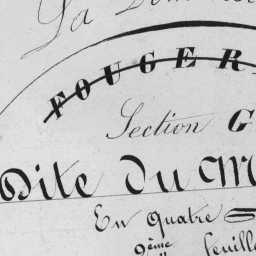 La
FOUGER
Section G
Dite du M
En Quatre
9ème feuille